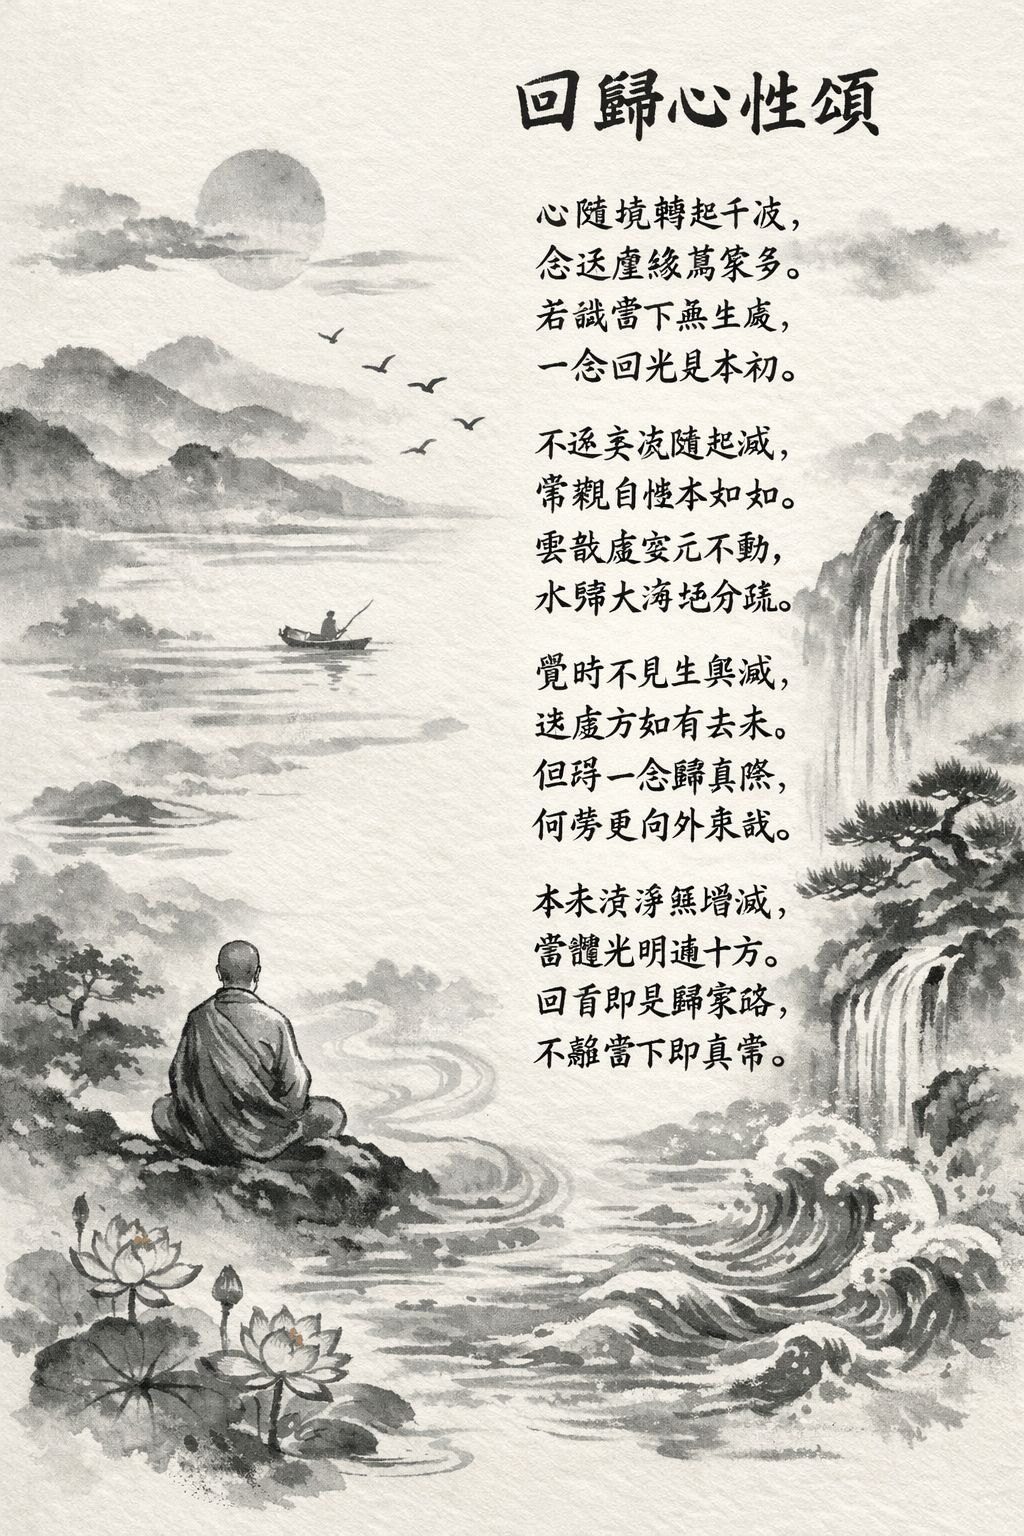 回歸心性頌
心隨境轉起千波，
念逐塵緣萬象多。
若識當下無生處，
一念回光見本初。
不逐妄流隨起滅，
常觀自性本如如。
雲散虛空元不動，
水歸大海絕分疏。
覺時不見生與滅，
迷處方如有去來。
但得一念歸真際，
何勞更向外求哉。
本來清淨無增減，
當體光明遍十方。
回首即是歸家路，
不離當下即真常。